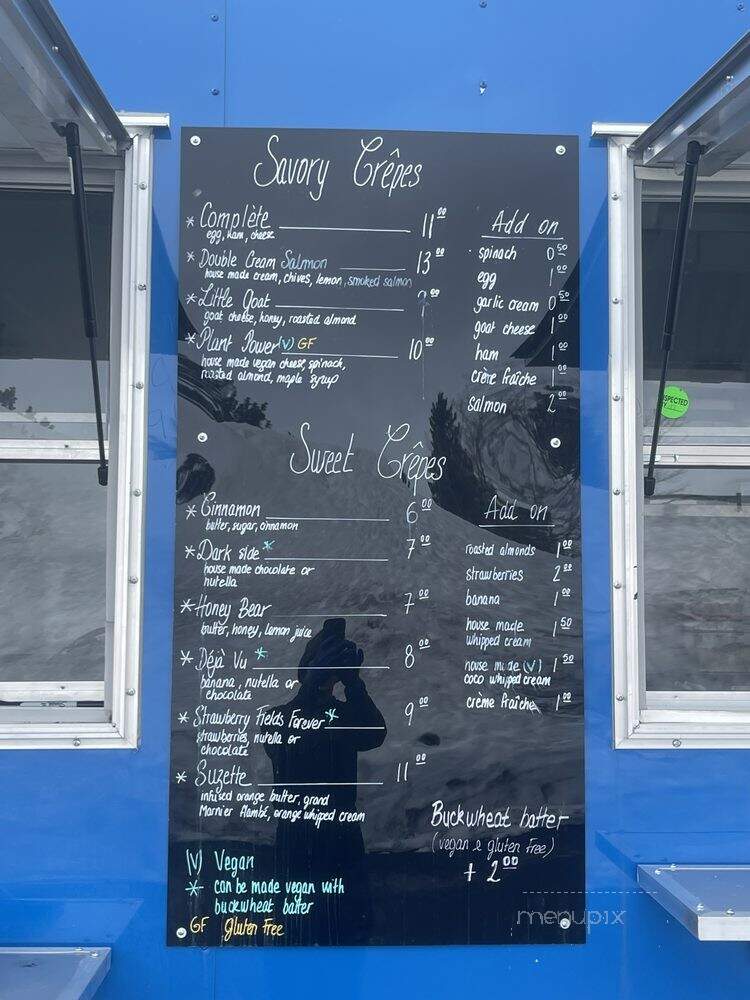 Savory Crêpes
* Complète 11 00
egg, ham, cheese
* Double Cream Salmon 13 00
house made cream, chives, lemon, smoked salmon
* Little Goat 9 00
goat cheese, honey, roasted almond
* Plant Power (V) GF 10 00
house made vegan cheese, spinach,
roasted almond, maple syrup
Add on
spinach 0 50
egg 1 00
garlic cream 0 50
goat cheese 1 00
ham 1 00
crème fraîche 1 00
salmon 2 00
Sweet Crêpes
* Cinnamon 6 00
butter, sugar, cinnamon
* Dark side * 7 00
house made chocolate or
nutella
* Honey Bear 7 00
butter, honey, lemon juice
* Déjà Vu * 8 00
banana, nutella or
chocolate
* Strawberry Fields Forever * 9 00
strawberries, nutella or
chocolate
* Suzette 11 00
infused orange butter, grand
Marnier flambé, orange whipped cream
Add on
roasted almonds 1 00
strawberries 2 00
banana 1 00
house made 1 50
whipped cream
house made (V) 1 50
coco whipped cream
crème fraîche 1 00
Buckwheat batter
(vegan & gluten free)
+ 2 00
(V) Vegan
* can be made vegan with
buckwheat batter
GF gluten Free
menupix